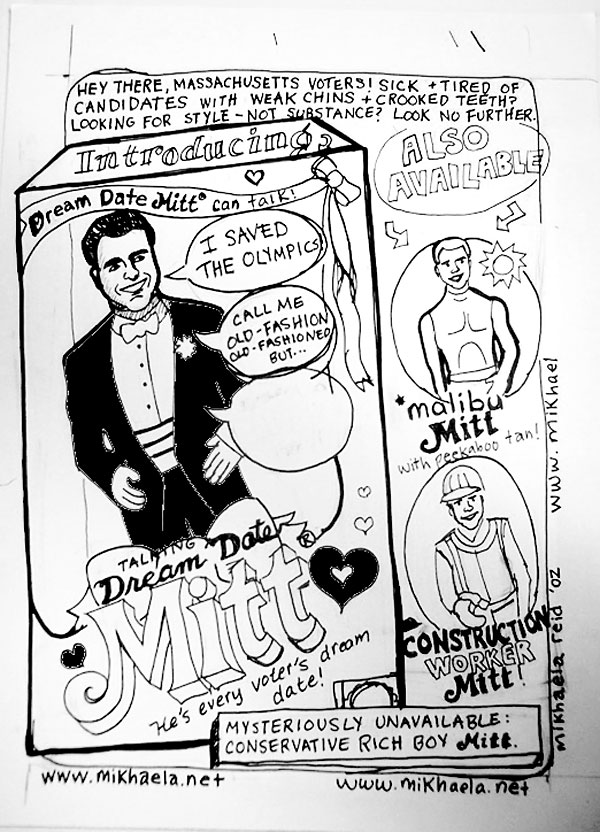 HEY THERE, MASSACHUSETTS VOTERS! SICK + TIRED OF
CANDIDATES WITH WEAK CHINS + CROOKED TEETH?
LOOKING FOR STYLE - NOT SUBSTANCE? LOOK NO FURTHER.
Introducing,
Dream Date Mitt® can talk!
I SAVED
THE OLYMPICS!
CALL ME
OLD-FASHION
OLD-FASHIONED
BUT...
TALKING
Dream Date
®
Mitt
He's every voter's dream
date!
ALSO
AVAILABLE
*malibu
Mitt
with peekaboo tan!
CONSTRUCTION
WORKER
Mitt!
MYSTERIOUSLY UNAVAILABLE:
CONSERVATIVE RICH BOY Mitt.
www.mikhaela.net
www.mikhaela.net
mikhaela reid '02
www.mikhael